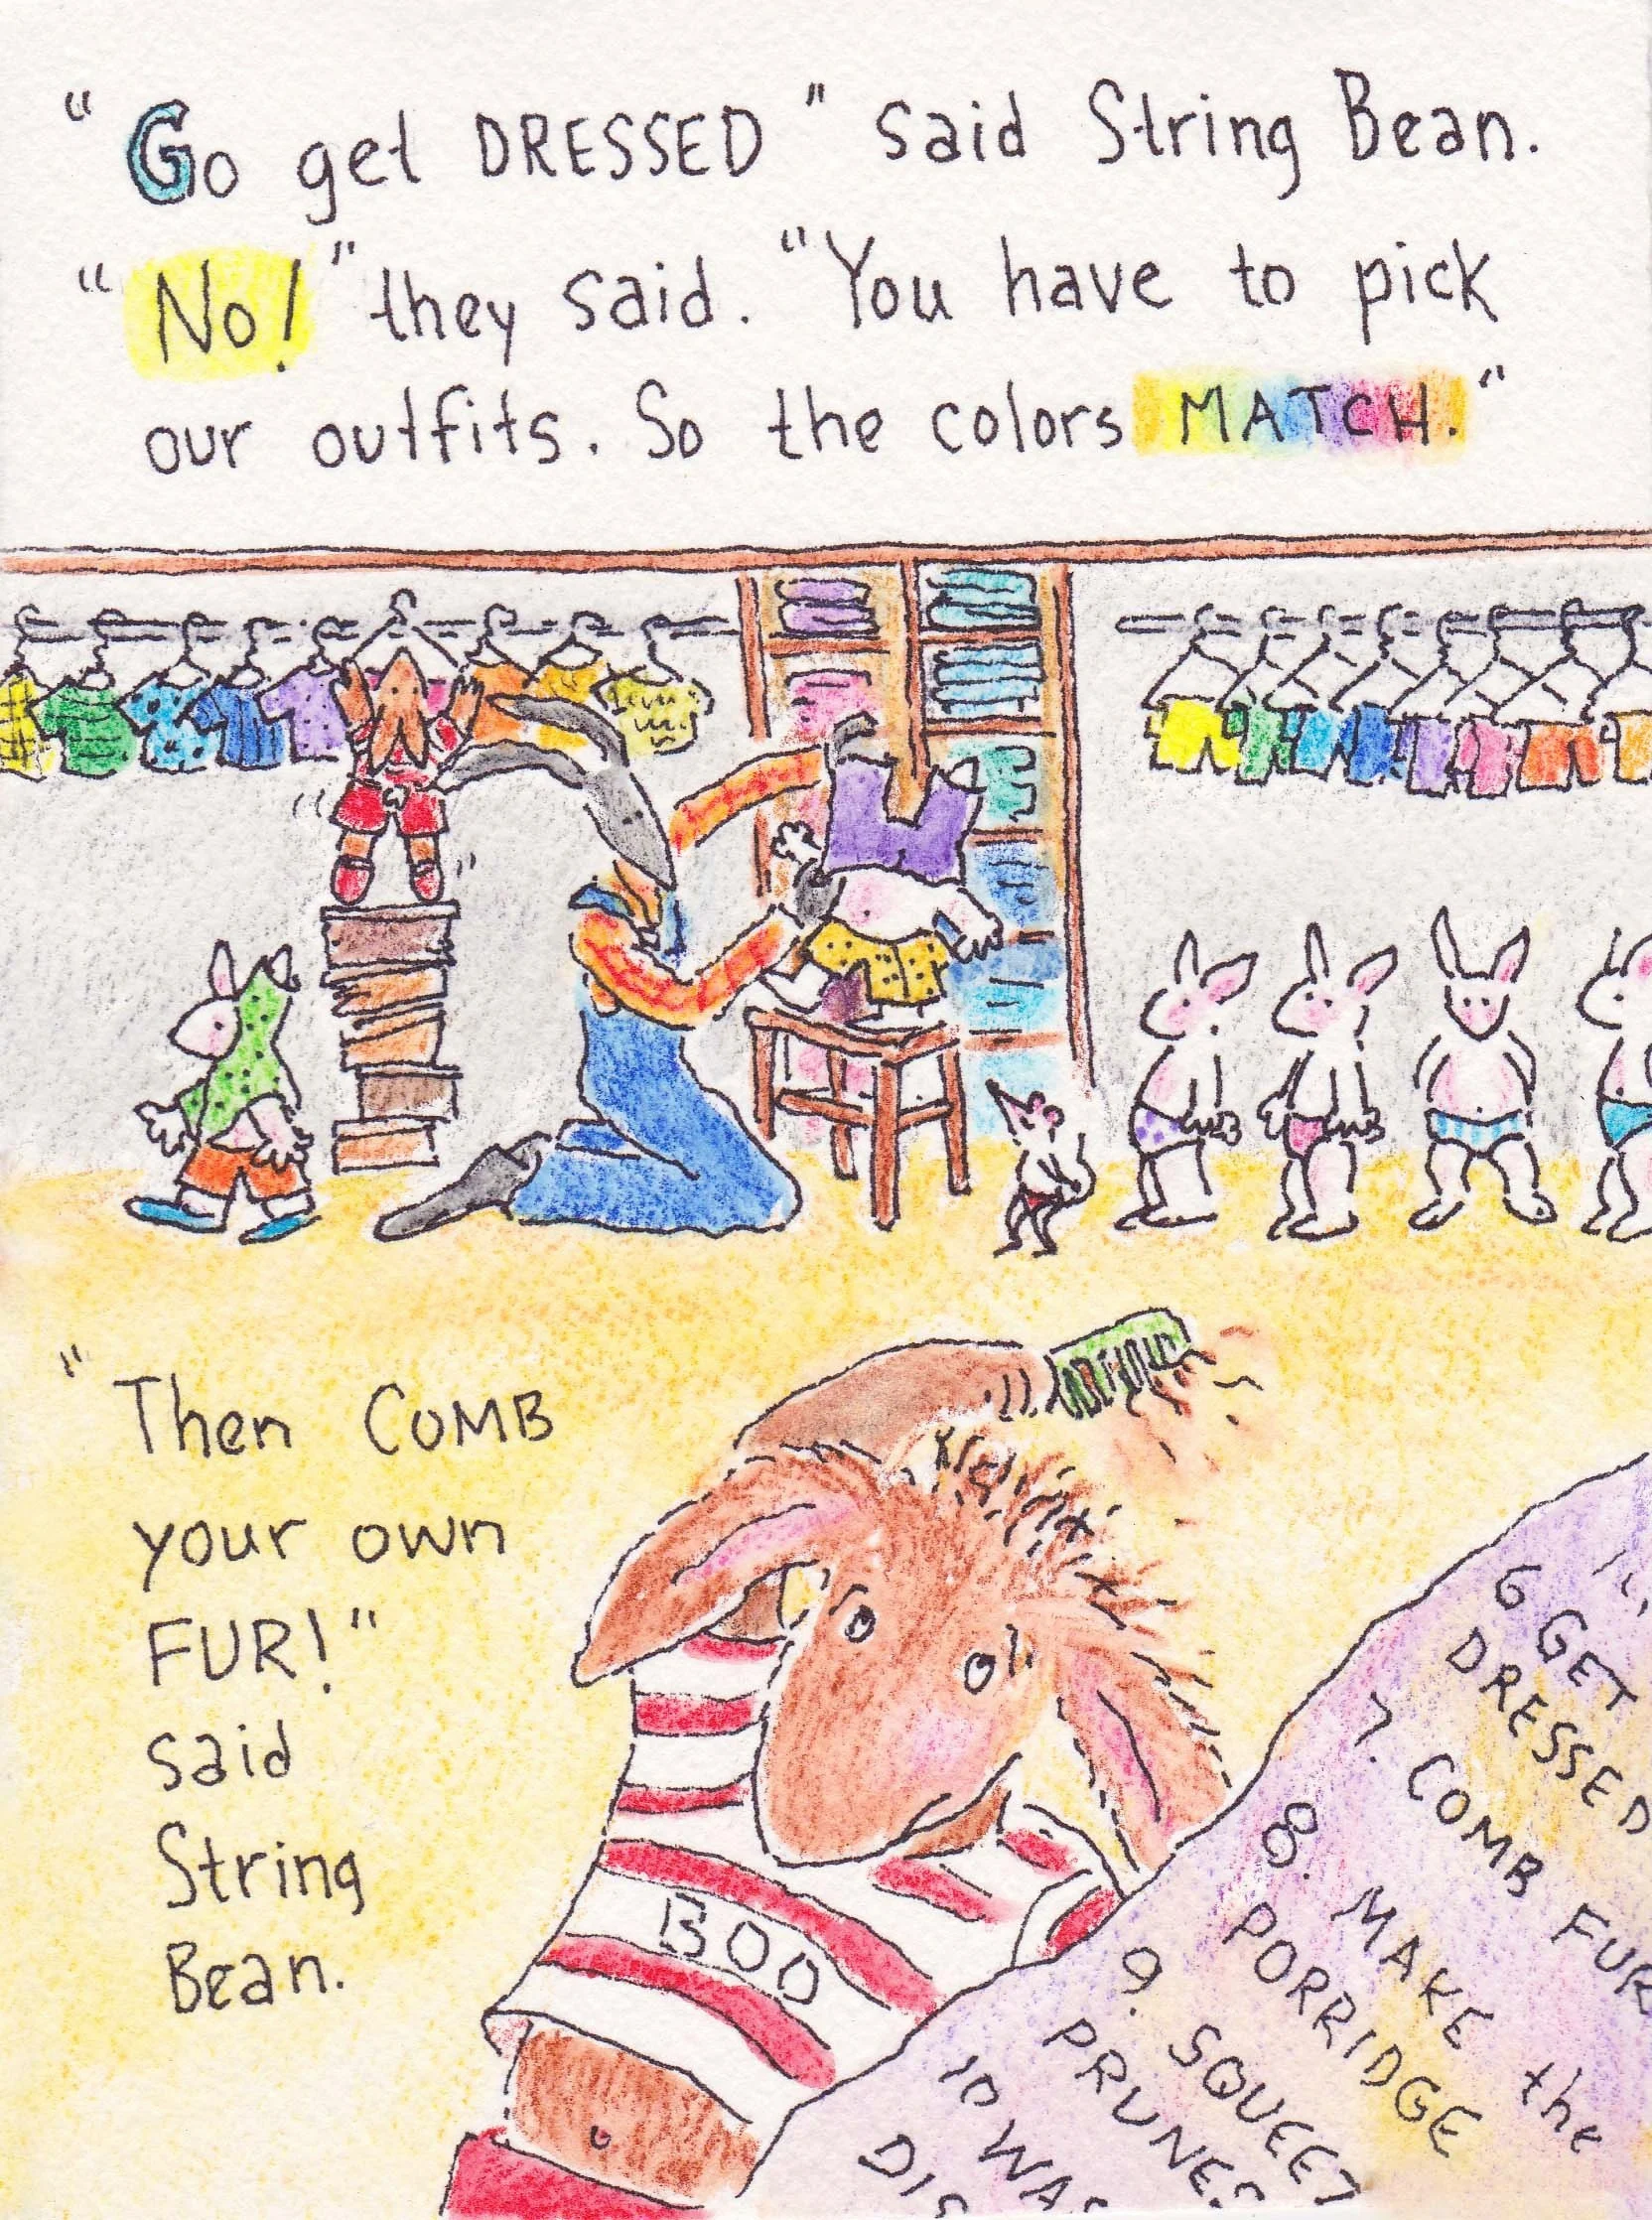 "Go get DRESSED" said String Bean.
"No!" they said. "You have to pick
our outfits. So the colors MATCH."
"Then COMB
your own
FUR!"
said
String
Bean.
BOO
6 GET
DRESSED
7. COMB FUR
8. MAKE the
PORRIDGE
9. SQUEEZ
PRUNES
10 WAS
DIS